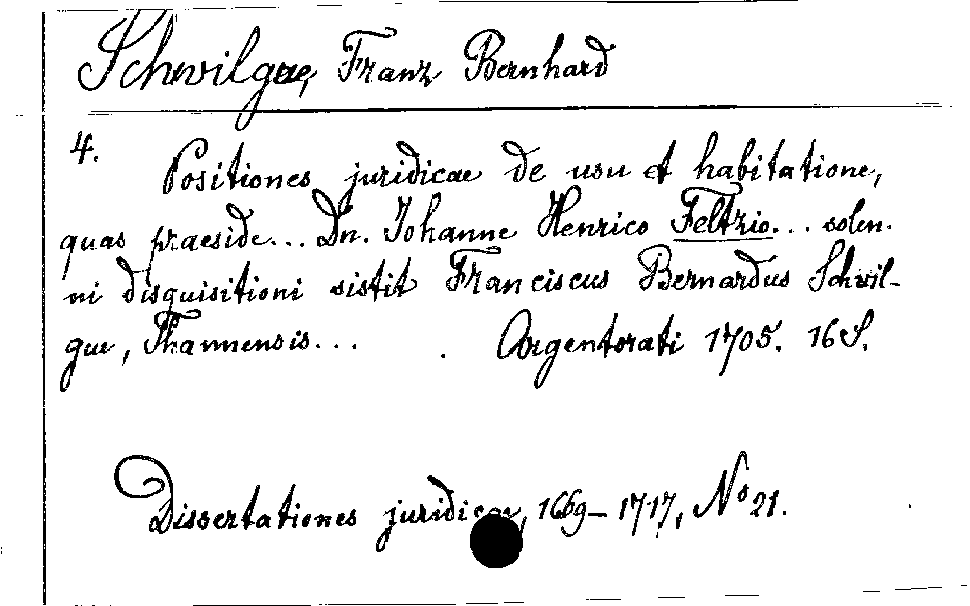 Schwilgue, Franz Bernhard
4.
Positiones juridicae de usu et habitatione,
quas praeside... Dn. Johanne Henrico Feltzio... solen.
ni disquisitioni sistit Franciscus Bernardus Schwil-
gue, Thannensis... Argentorati 1705. 16 S.
Dissertationes juridicae, 1669-1717, No 21.